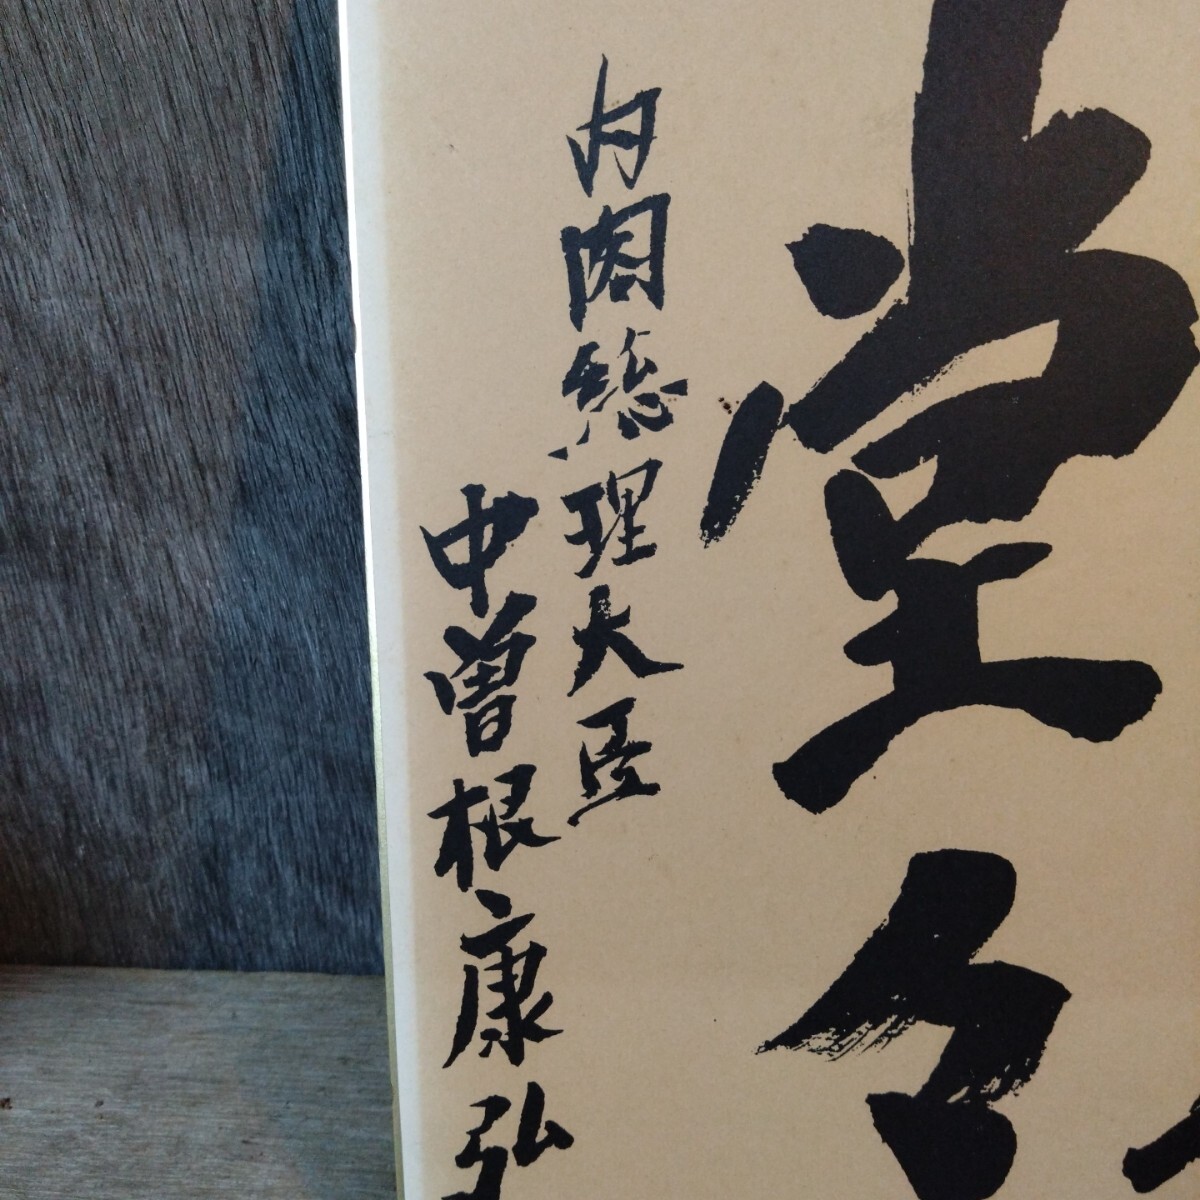 堂々
内閣総理大臣
中曽根康弘